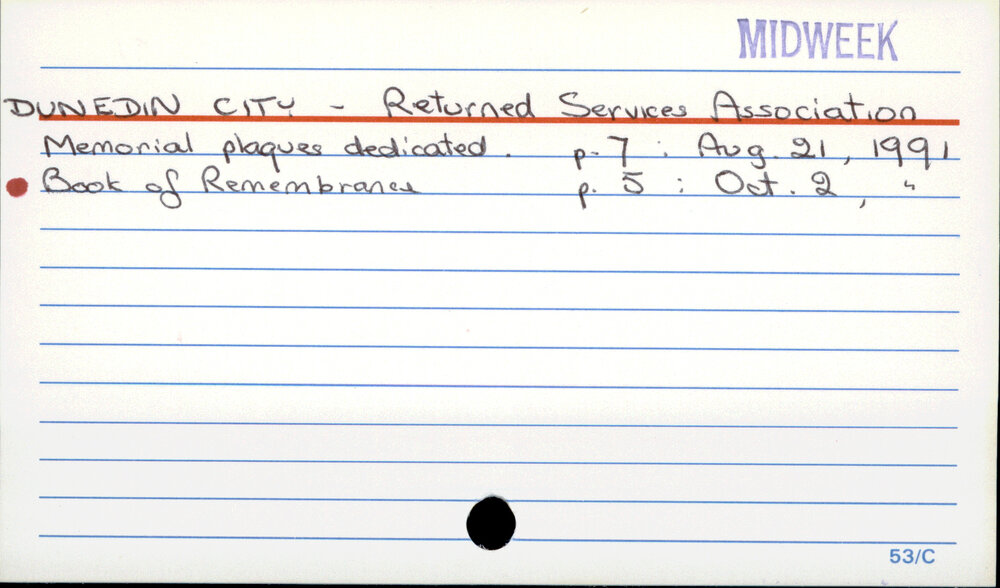 MIDWEEK
DUNEDIN CITY - Returned Services Association
Memorial plaques dedicated. p. 7 : Aug. 21, 1991
Book of Remembrance p. 5 : Oct. 2, "
53/C